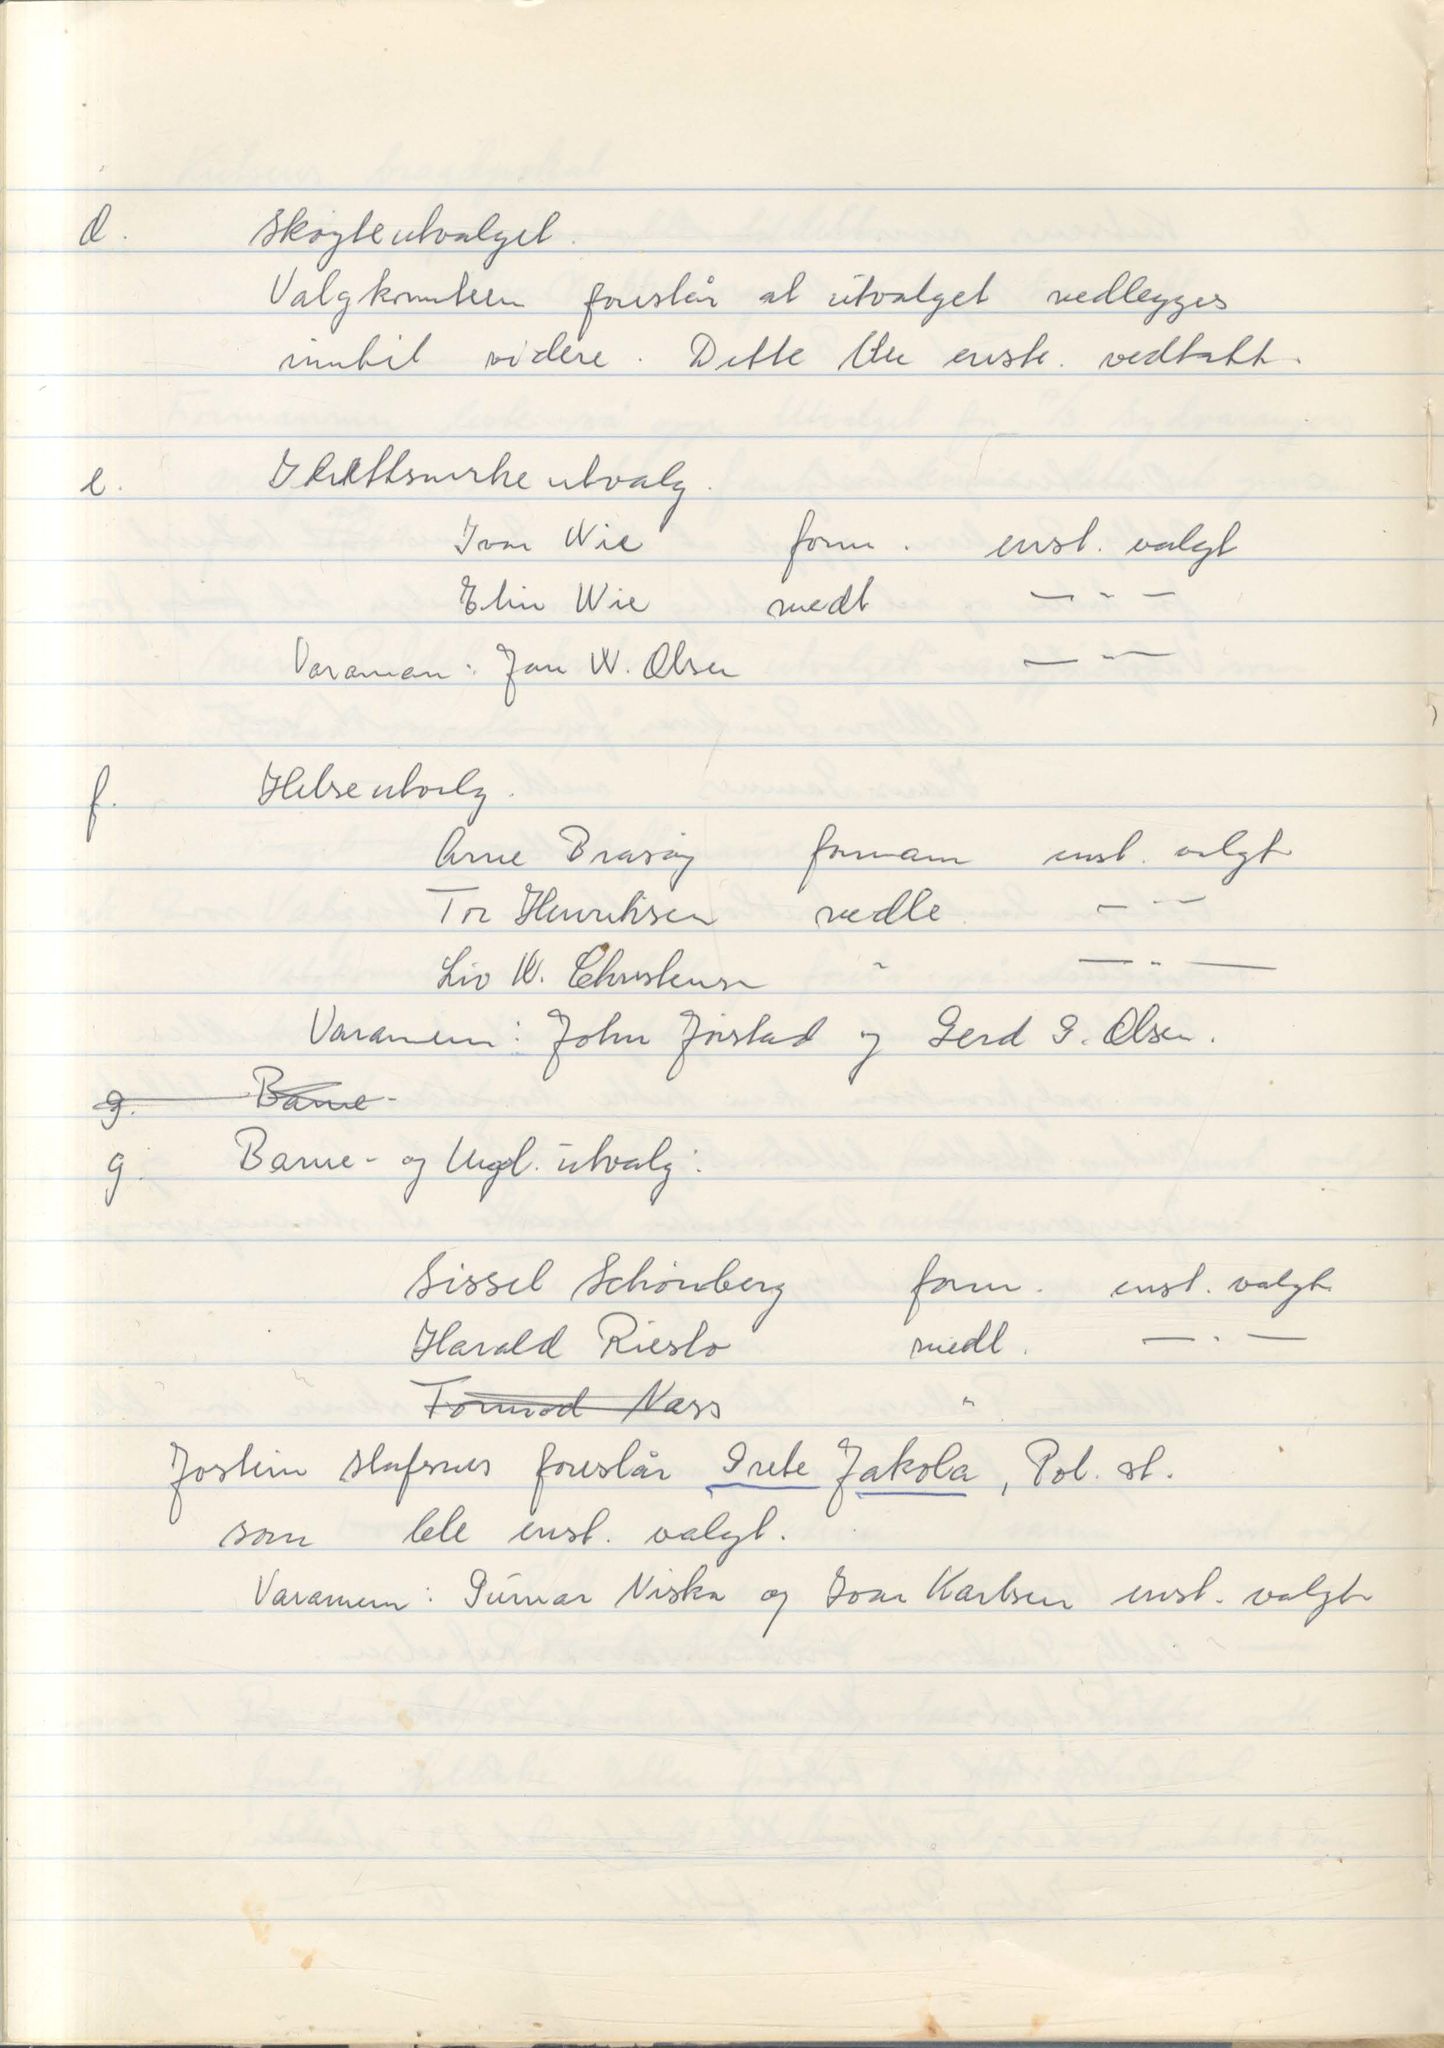 d. Skøyteutvalget.
Valgkomiteen foreslår at utvalget nedlegges
inntil videre. Dette ble enst. vedtatt.
e. Idrettsmerkeutvalg.
Ivar Wie form. enst. valgt
Elin Wie medl — " —
Varaman: Jan W. Olsen — " —
f. Helseutvalg.
Arne Brasøy formann enst. valgt
Tor Henriksen medle — " —
Liv W. Christensen " — " —
Varamenn: John Jørstad og Gerd G. Olsen.
g. Barne-
g. Barne- og Ungd. utvalg:
Sissel Schönberg form. enst. valgt
Harald Riesto medl. — " —
Tormod Næss "
Jostein foreslår Grete Jakola, Pol. st.
som ble enst. valgt.
Varamenn: Gunnar Niska og Ivar Karlsen enst. valgt